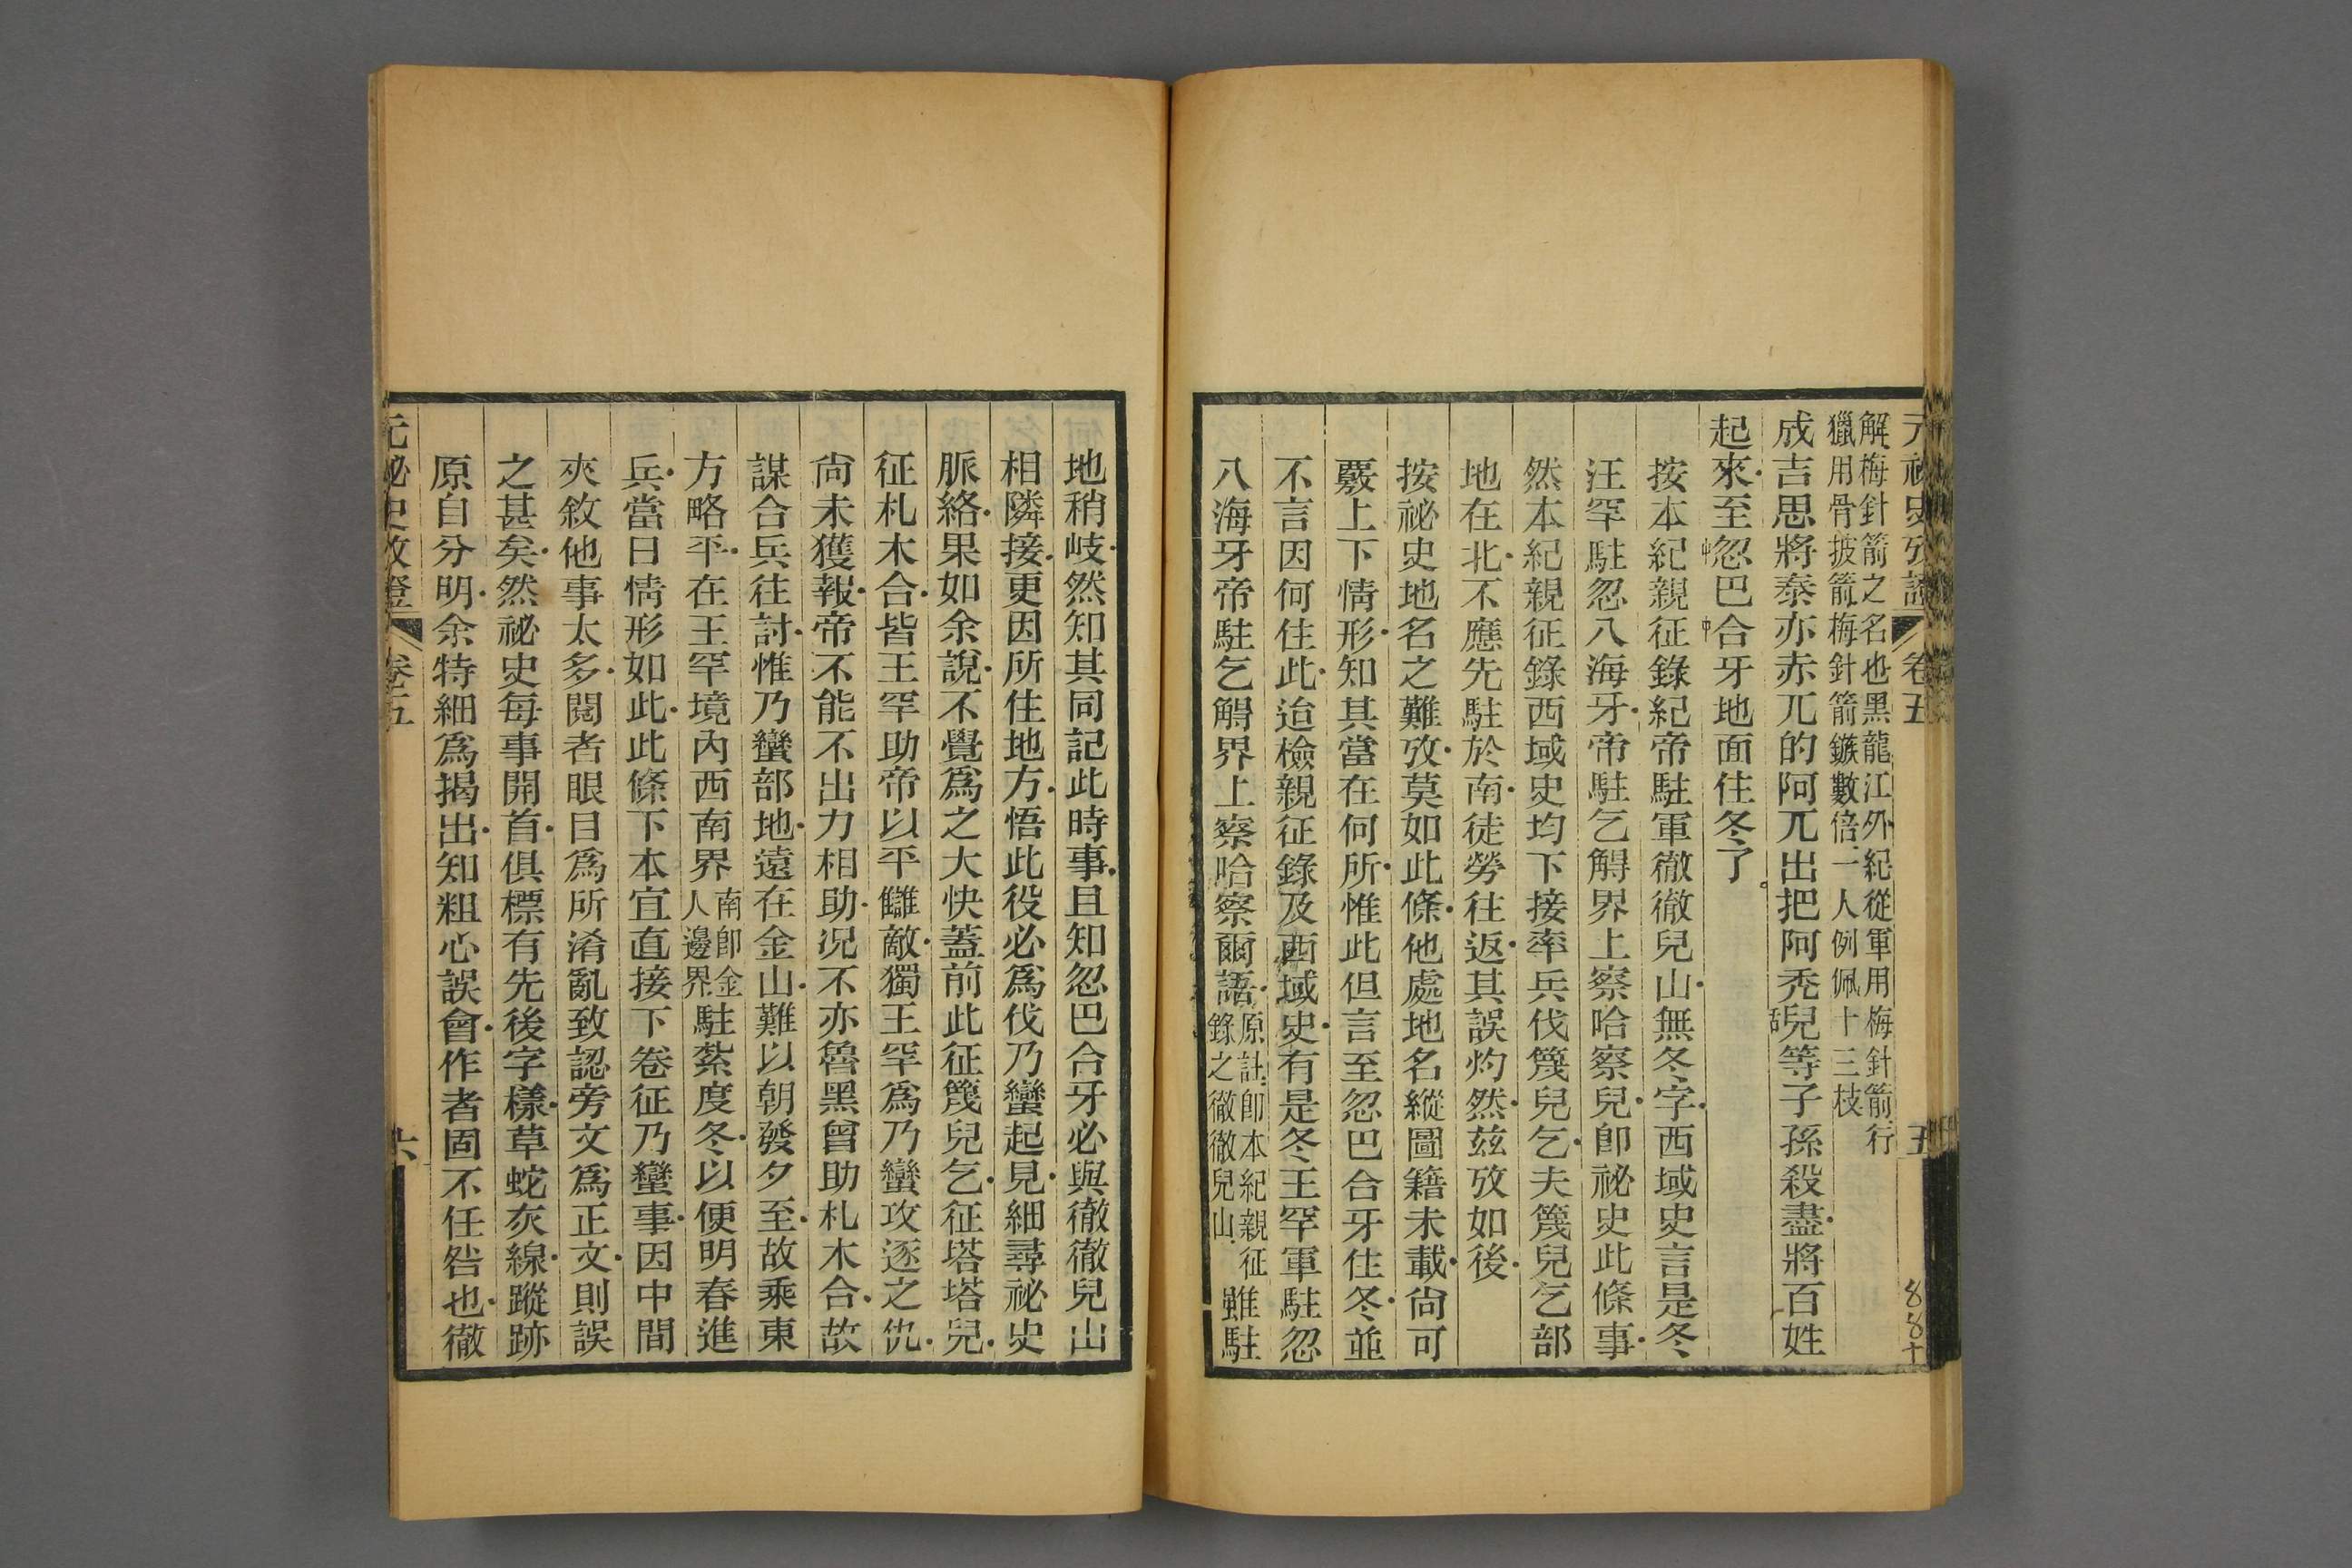 元祕史攷證 卷五 五
解梅針箭之名也黑龍江外紀從軍用梅針箭行
獵用骨披箭梅針箭鏃數倍一人例佩十三枝
成吉思將泰亦赤兀的阿兀出把阿禿兒等子孫殺盡將百姓
起來至忽巴合牙地面住冬了。
按本紀親征錄紀帝駐軍徹徹兒山無冬字西域史言是冬
汪罕駐忽八海牙帝駐乞䚟界上察哈察兒卽祕史此條事
然本紀親征錄西域史均下接率兵伐篾兒乞夫篾兒乞部
地在北不應先駐於南徒勞往返其誤灼然茲攷如後
按祕史地名之難攷莫如此條他處地名縱圖籍未載尙可
覈上下情形知其當在何所惟此但言至忽巴合牙住冬並
不言因何住此迨檢親征錄及西域史有是冬王罕軍駐忽
八海牙帝駐乞䚟界上察哈察爾語原註卽本紀親征錄之徹徹兒山雖駐
地稍岐然知其同記此時事且知忽巴合牙必與徹徹兒山
相隣接更因所住地方悟此役必爲伐乃蠻起見細尋祕史
脈絡果如余說不覺爲之大快蓋前此征篾兒乞征塔塔兒
征札木合皆王罕助帝以平讎敵獨王罕爲乃蠻攻逐之仇
尙未獲報帝不能不出力相助况不亦魯黑曾助札木合故
謀合兵往討惟乃蠻部地遠在金山難以朝發夕至故乘東
方略平在王罕境內西南界南卽金人邊界駐紮度冬以便明春進
兵當日情形如此此條下本宜直接下卷征乃蠻事因中間
夾敘他事太多閱者眼目爲所淆亂致認旁文爲正文則誤
之甚矣然祕史每事開首俱標有先後字樣草蛇灰線蹤跡
原自分明余特細爲揭出知粗心誤會作者固不任咎也徹
元祕史攷證 卷五 六